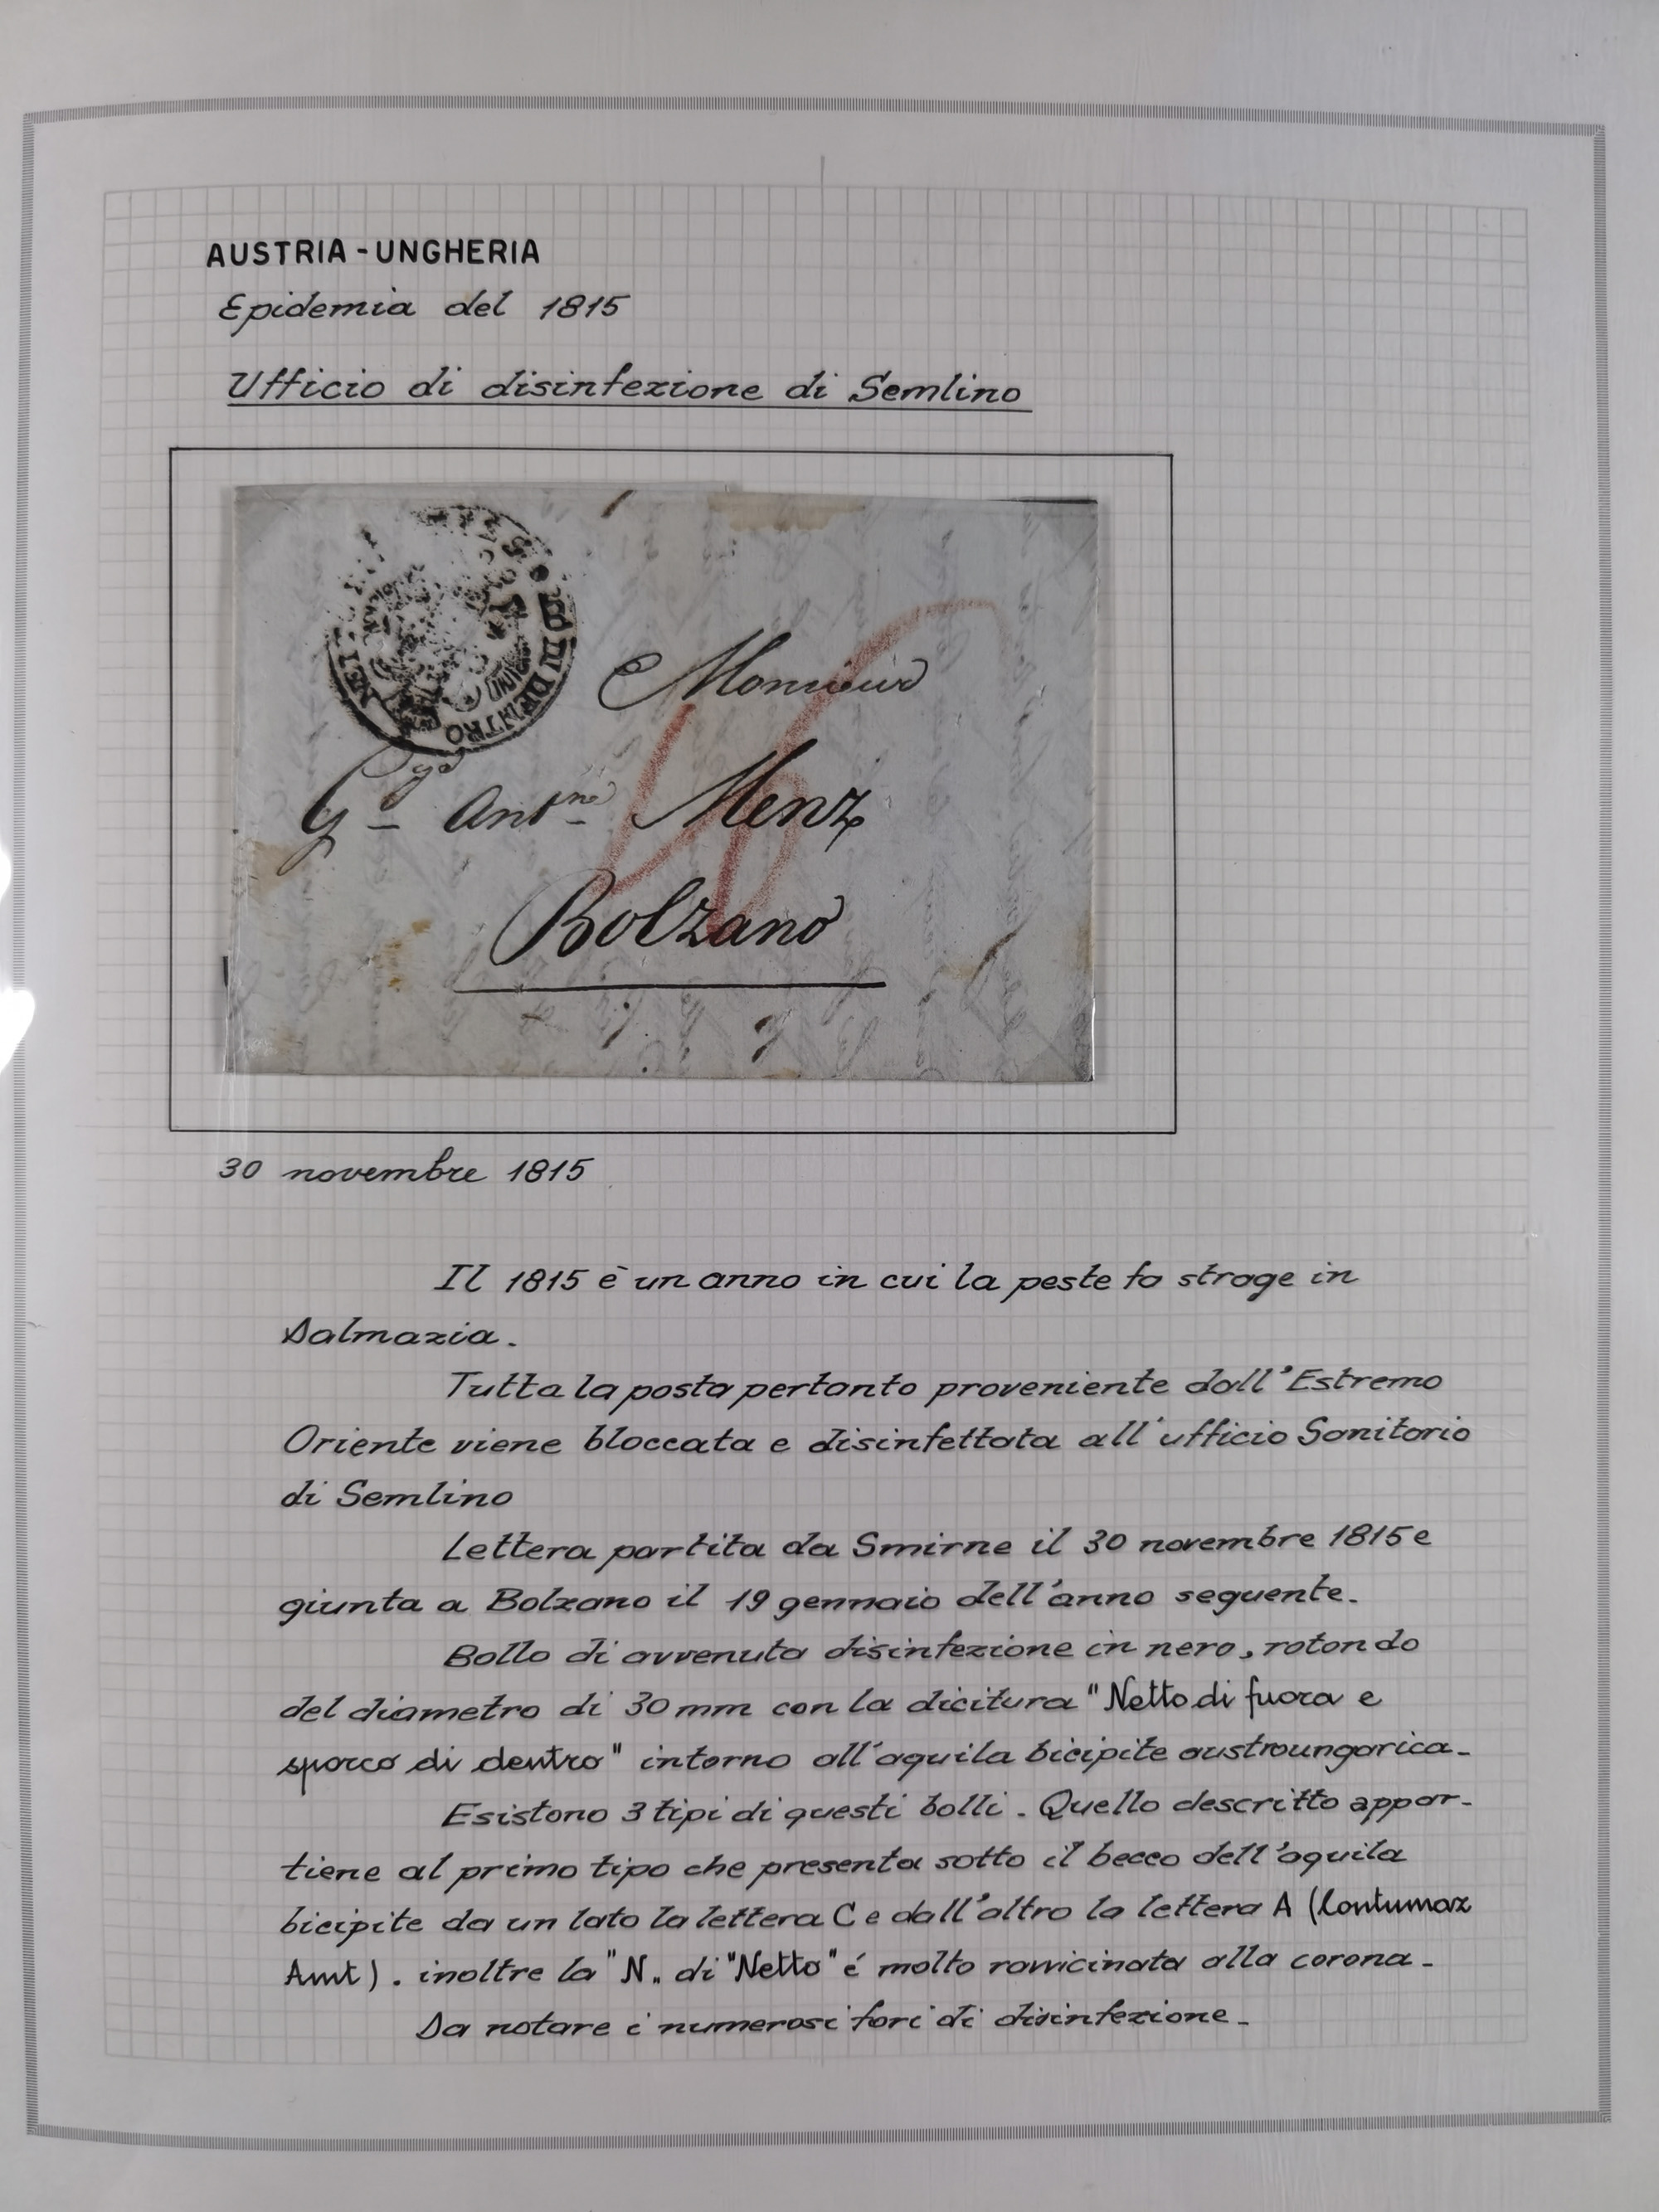 AUSTRIA-UNGHERIA
Epidemia del 1815
Ufficio di disinfezione di Semlino
DI DENTRO
NET
Monsieur
Gd Antne Menz
Bolzano
30 novembre 1815
Il 1815 è un anno in cui la peste fa strage in
Dalmazia.
Tutta la posta pertanto proveniente dall'Estremo
Oriente viene bloccata e disinfettata all'ufficio Sanitario
di Semlino
Lettera partita da Smirne il 30 novembre 1815 e
giunta a Bolzano il 19 gennaio dell'anno seguente.
Bollo di avvenuta disinfezione in nero, rotondo
del diametro di 30 mm con la dicitura "Netto di fuora e
sporco di dentro" intorno all'aquila bicipite austroungarica.
Esistono 3 tipi di questi bolli. Quello descritto appar-
tiene al primo tipo che presenta sotto il becco dell'aquila
bicipite da un lato la lettera C e dall'altro la lettera A (Contumaz
Amt). inoltre la "N" di "Netto" é molto ravvicinata alla corona.
Da notare i numerosi fori di disinfezione.